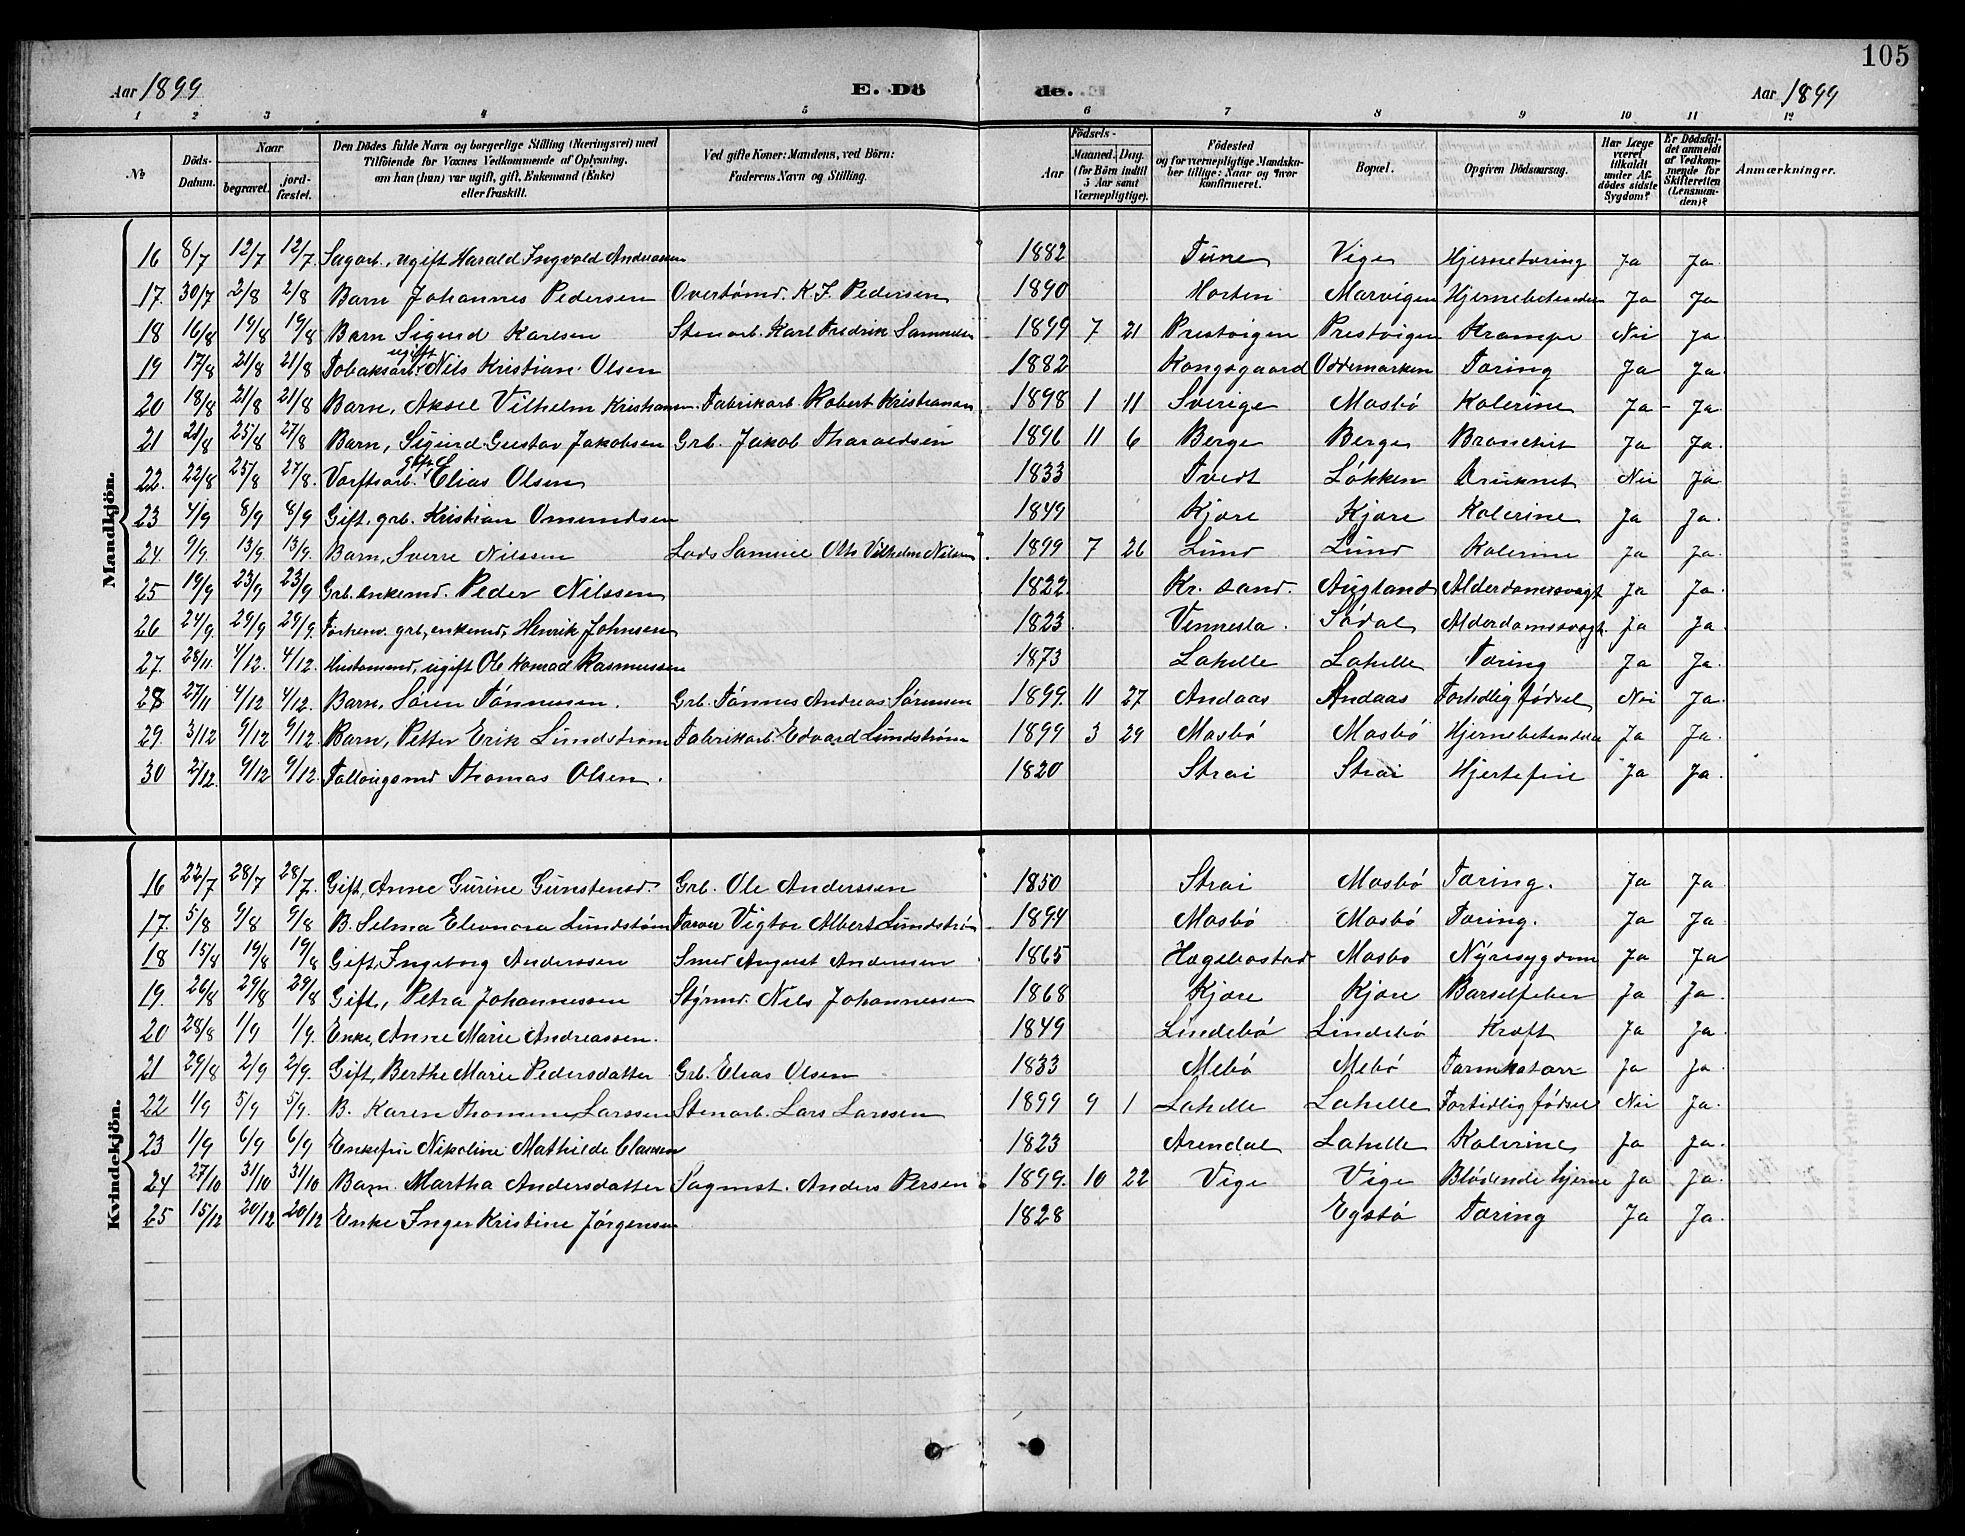 105
Aar 1899 E. Dö de. Aar 1899
1 2 3 4 5 6 7 8 9 10 11 12
№ Döds-Datum. Naar begravet. jordfæstet. Den Dödes fulde Navn og borgerlige Stilling (Næringsvei) med Tilföiende for Voxnes Vedkommende af Oplysning, om han (hun) var ugift, gift, Enkemand (Enke) eller fraskilt. Ved gifte Koner: Mandens, ved Börn: Faderens Navn og Stilling. Födsels- Aar Maaned. Dag. (for Börn indtil 5 Aar samt Værnepligtige). Födested og for værnepligtige Mandskaber tillige: Naar og hvor konfirmeret. Bopæl. Opgiven Dödsaarsag. Har Læge været tilkaldt under Afdödes sidste Sygdom? Er Dödsfaldet anmeldt af Vedkommende for Skifteretten (Lensmanden)? Anmærkninger.
Mandkjön.
16 8/7 12/7 12/7 Sagarb., ugift Harald Ingvald Andreassen 1882 Tune Vige Hjernetæring Ja Ja.
17. 30/7 2/8 2/8 Barn Johannes Pedersen Overtømd. K. F. Pedersen 1890 Horten Marvigen Hjernebetændelse Ja Ja
18 16/8 19/8 19/8 Barn Sigurd Karlsen Stenarb. Karl Fredrik Samuelsen 1899 7 21 Prestvigen Prestvigen Krampe Nei Ja
19 17/8 21/8 21/8 Tobaksarb. ugift Nils Kristian Olsen 1882 Kongsgaard Oddemarken Tæring Ja Ja.
20 18/8 21/8 21/8 Barn, Aksel Vilhelm Kristiansen. Fabrikarb. Robert Kristiansen 1898 1 11 Sverige Mosbö Kolerine Ja - Ja.
21 21/8 25/8 27/8 Barn, Sigurd Gustav Jakobsen Grb. Jakob Tharaldsen 1896 11 6 Berge Berge Bronchit Ja Ja.
22. 22/8 25/8 27/8. Værftsarb. gift Elias Olsen 1833 Tvedt Løkken Druknet Nei Ja
23 4/9 8/9 8/9 Gift, grb. Kristian Omundsen 1849 Kjære Kjære Kolerine Ja Ja.
24. 9/9. 13/9 13/9. Barn, Sverre Nilssen Lods Samuel Otto Vilhelm Nilsen. 1899 7 26 Lund Lund Kolerine Ja Ja.
25 19/9 23/9 23/9 Grb. enkemd. Peder Nilssen 1822. Kr. sand. Augland Alderdomssvagt Ja Ja.
26 24/9. 29/9 29/9. Forhenv. grb., enkemd, Henrik Johnsen 1823. Vennesla. Sødal Alderdomssvagt. Ja Ja.
27. 28/11. 4/12. 4/12. Husmand, ugift Ole Konrad Rasmussen 1873 Lahelle Lahelle Tæring Ja Ja.
28 27/11 4/12 4/12. Barn, Søren Tønnessen. Grb. Tønnes Andreas Sørensen 1899. 11 27 Andaas Andaas Fortidlig fødsel Nei Ja.
29. 3/12 9/12 9/12. Barn, Petter Erik Lundstrøm Fabrikarb. Edvard Lundstrøm 1899 3 29 Mosbö Mosbö Hjernebetændelse Ja Ja.
30 2/12. 9/12 9/12. Fattiglgsmd Thomas Olsen. 1820 Strai Strai Hjertefeil Ja Ja.
Kvindekjön.
16 22/7 28/7 28/7. Gift, Anne Gurine Gunstensd. Grb. Ole Anderssen 1850 Strai Mosbö Tæring. Ja Ja
17. 5/8 9/8 9/8 B. Selma Eleonora Lundstrøm Farver Vigtor Albert Lundstrøm 1894 Mosbö Mosbö Tæring. Ja Ja.
18 15/8 19/8 19/8 Gift, Ingeborg Anderssen Smed August Andersen 1865 Hægebostad Mosbö Nyresygdom Ja Ja
19. 26/8 29/8 29/8 Gift, Petra Johannessen Styrmd. Nils Johannessen 1868 Kjære Kjære Barselfeber Ja Ja.
20 28/8 1/9 1/9. Enke, Anne Marie Andreassen. 1849 Lindebö Lindebö Kræft Ja Ja.
21 29/8 2/9 2/9. Gift, Berthe Marie Pedersdatter Grb. Elias Olsen 1833 Mebö Mebö Tarmkatarr Ja Ja.
22 1/9 5/9 5/9. B. Karen Thomine Larssen Stenarb. Lars Larssen 1899 9 1 Lahelle Lahelle Fortidlig fødsel Nei Ja.
23 1/9 6/9 6/9 Enkefru Nikoline Mathilde Clausen 1823 Arendal Lahelle Kolerine Ja Ja.
24 27/10 31/10 31/10 Barn. Martha Andersdatter Sagmst. Anders Persen 1899. 10 22 Vige Vige Blødende hjerne Ja Ja.
25 15/12 20/12 20/12 Enke Inger Kristine Jørgensen 1828 Egsbö Tæring Ja Ja.